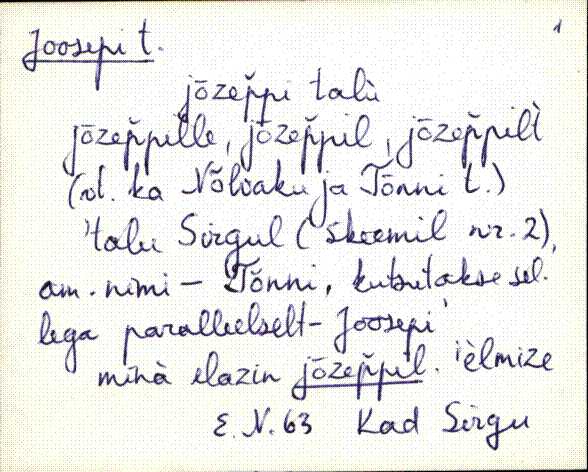 Joosepi t.
1
jōzep̌pi talù
jōzep̌pil̆le, jōzep̌pil, jōzep̌pilt̀
(vl. ka Nõlvaku ja Tõnni t.)
'talu Sirgul (skeemil nr. 2),
am. nimi – Tõnni, kutsutakse sel.
lega paralleelselt – Joosepi'
minà elazin jōzep̌pil. 'èlmize
E. N. 63 Kad Sirgu